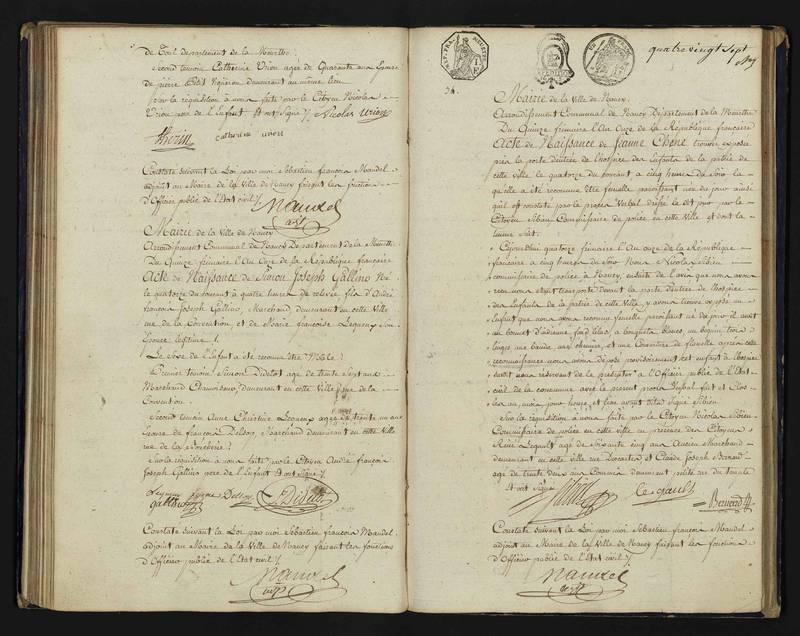 de Toul département de la Meurthe.
Second temoin Catherine Urion agée de Quarante ans Epouse
de pierre demeurant au même lieu
Sur la réquisition à nous faite par le Citoyen Nicolas
Urion pere de l'Enfant Et ont signé /. Nicolas urion
therin catherine urion
Constaté suivant la Loi par moi Sébastien françois Mandel
adjoint au Maire de la Ville de Nancy faisant les fonctions
d'Officier public de l'Etat civil /.
Mandel
adjt
Mairie de la Ville de Nancy
Arrondissement Communal de Nancy Département de la Meurthe
Du Quinze frimaire l'An Onze de la République française
Acte de Naissance de Simon Joseph Gallino Né
le quatorze du courant à quatre heures de relevée fils d'André
françois Joseph Gallino, Marchand demeurant en cette Ville
rue de la Convention, et de Marie françoise Lequeux son
Epouse légitime /.
Le Sexe de l'Enfant a été reconnu être Mâle /.
Premier temoin Simon Didelot agé de trente sept ans
Marchand Chamoiseur, demeurant en cette Ville rue de la
Convention.
Second temoin Anne Christine Lequeux agée de trente un ans
Epouse de françois Delsor, Marchand demeurant en cette Ville
rue de la
Sur la réquisition à nous faite par le Citoyen André françois
Joseph Gallino pere de l'Enfant Et ont signé /.
Delsor Didelot
gallino
Constaté suivant la Loi par moi Sébastien françois Mandel
adjoint au Maire de la Ville de Nancy faisant les fonctions
d'Officier public de l'Etat civil /.
Mandel
adjt
quatre vingt Sept
Mairie de la Ville de Nancy.
Arrondissement Communal de Nancy Département de la Meurthe
Du Quinze frimaire l'An Onze de la République française
Acte de Naissance de Jeanne Chone, trouvée exposée
près la porte d'entrée de l'hospice des Enfants de la patrie de
cette ville le quatorze du courant à cinq heures du soir la
quelle a été reconnue être femelle paroissant née du jour ainsi
qu'il est constaté par le procès Verbal dressé le dit jour par le
Citoyen Sibien Commissaire de police en cette Ville et dont la
teneur suit.
Cejourd'hui quatorze frimaire l'An onze de la République
française à cinq heures du soir Nous Nicolas Sibien
commissaire de police à Nancy, ensuite de l'avis que nous avons
reçu nous étant transporté devant la porte d'entrée de l'hospice
des Enfants de la patrie de cette Ville, y avons trouvé exposé un
Enfant que nous avons reconnu femelle paroissant né du jour il avoit
au bonnet d'indienne fond lilas, à bouquets blancs, un beguin, trois
langes une bande, une chemise, et une Couverture de flanelle après cette
reconnaissance nous avons déposé provisoirement cet enfant à l'hospice
nous réservant de le présenter à l'Officier public de l'Etat
civil de la commune avec le présent procès Verbal fait et Clos
les an, mois, jour, heure, et lieu avant dits, Signé Sibien
Sur la réquisition à nous faite par le Citoyen Nicolas Sibien
Commissaire de police en cette ville en présence des Citoyens
René Legault agé de Soixante cinq ans Ancien Marchand
demeurant en cette ville rue et Claude Joseph Bernard
agé de trente deux ans Commis demeurant place du temple
Et ont signé
Sibien Le gault Bernard
Constaté suivant la Loi par moi Sébastien françois Mandel
adjoint au Maire de la Ville de Nancy faisant les fonctions
d'Officier public de l'Etat civil /.
Mandel
adjt